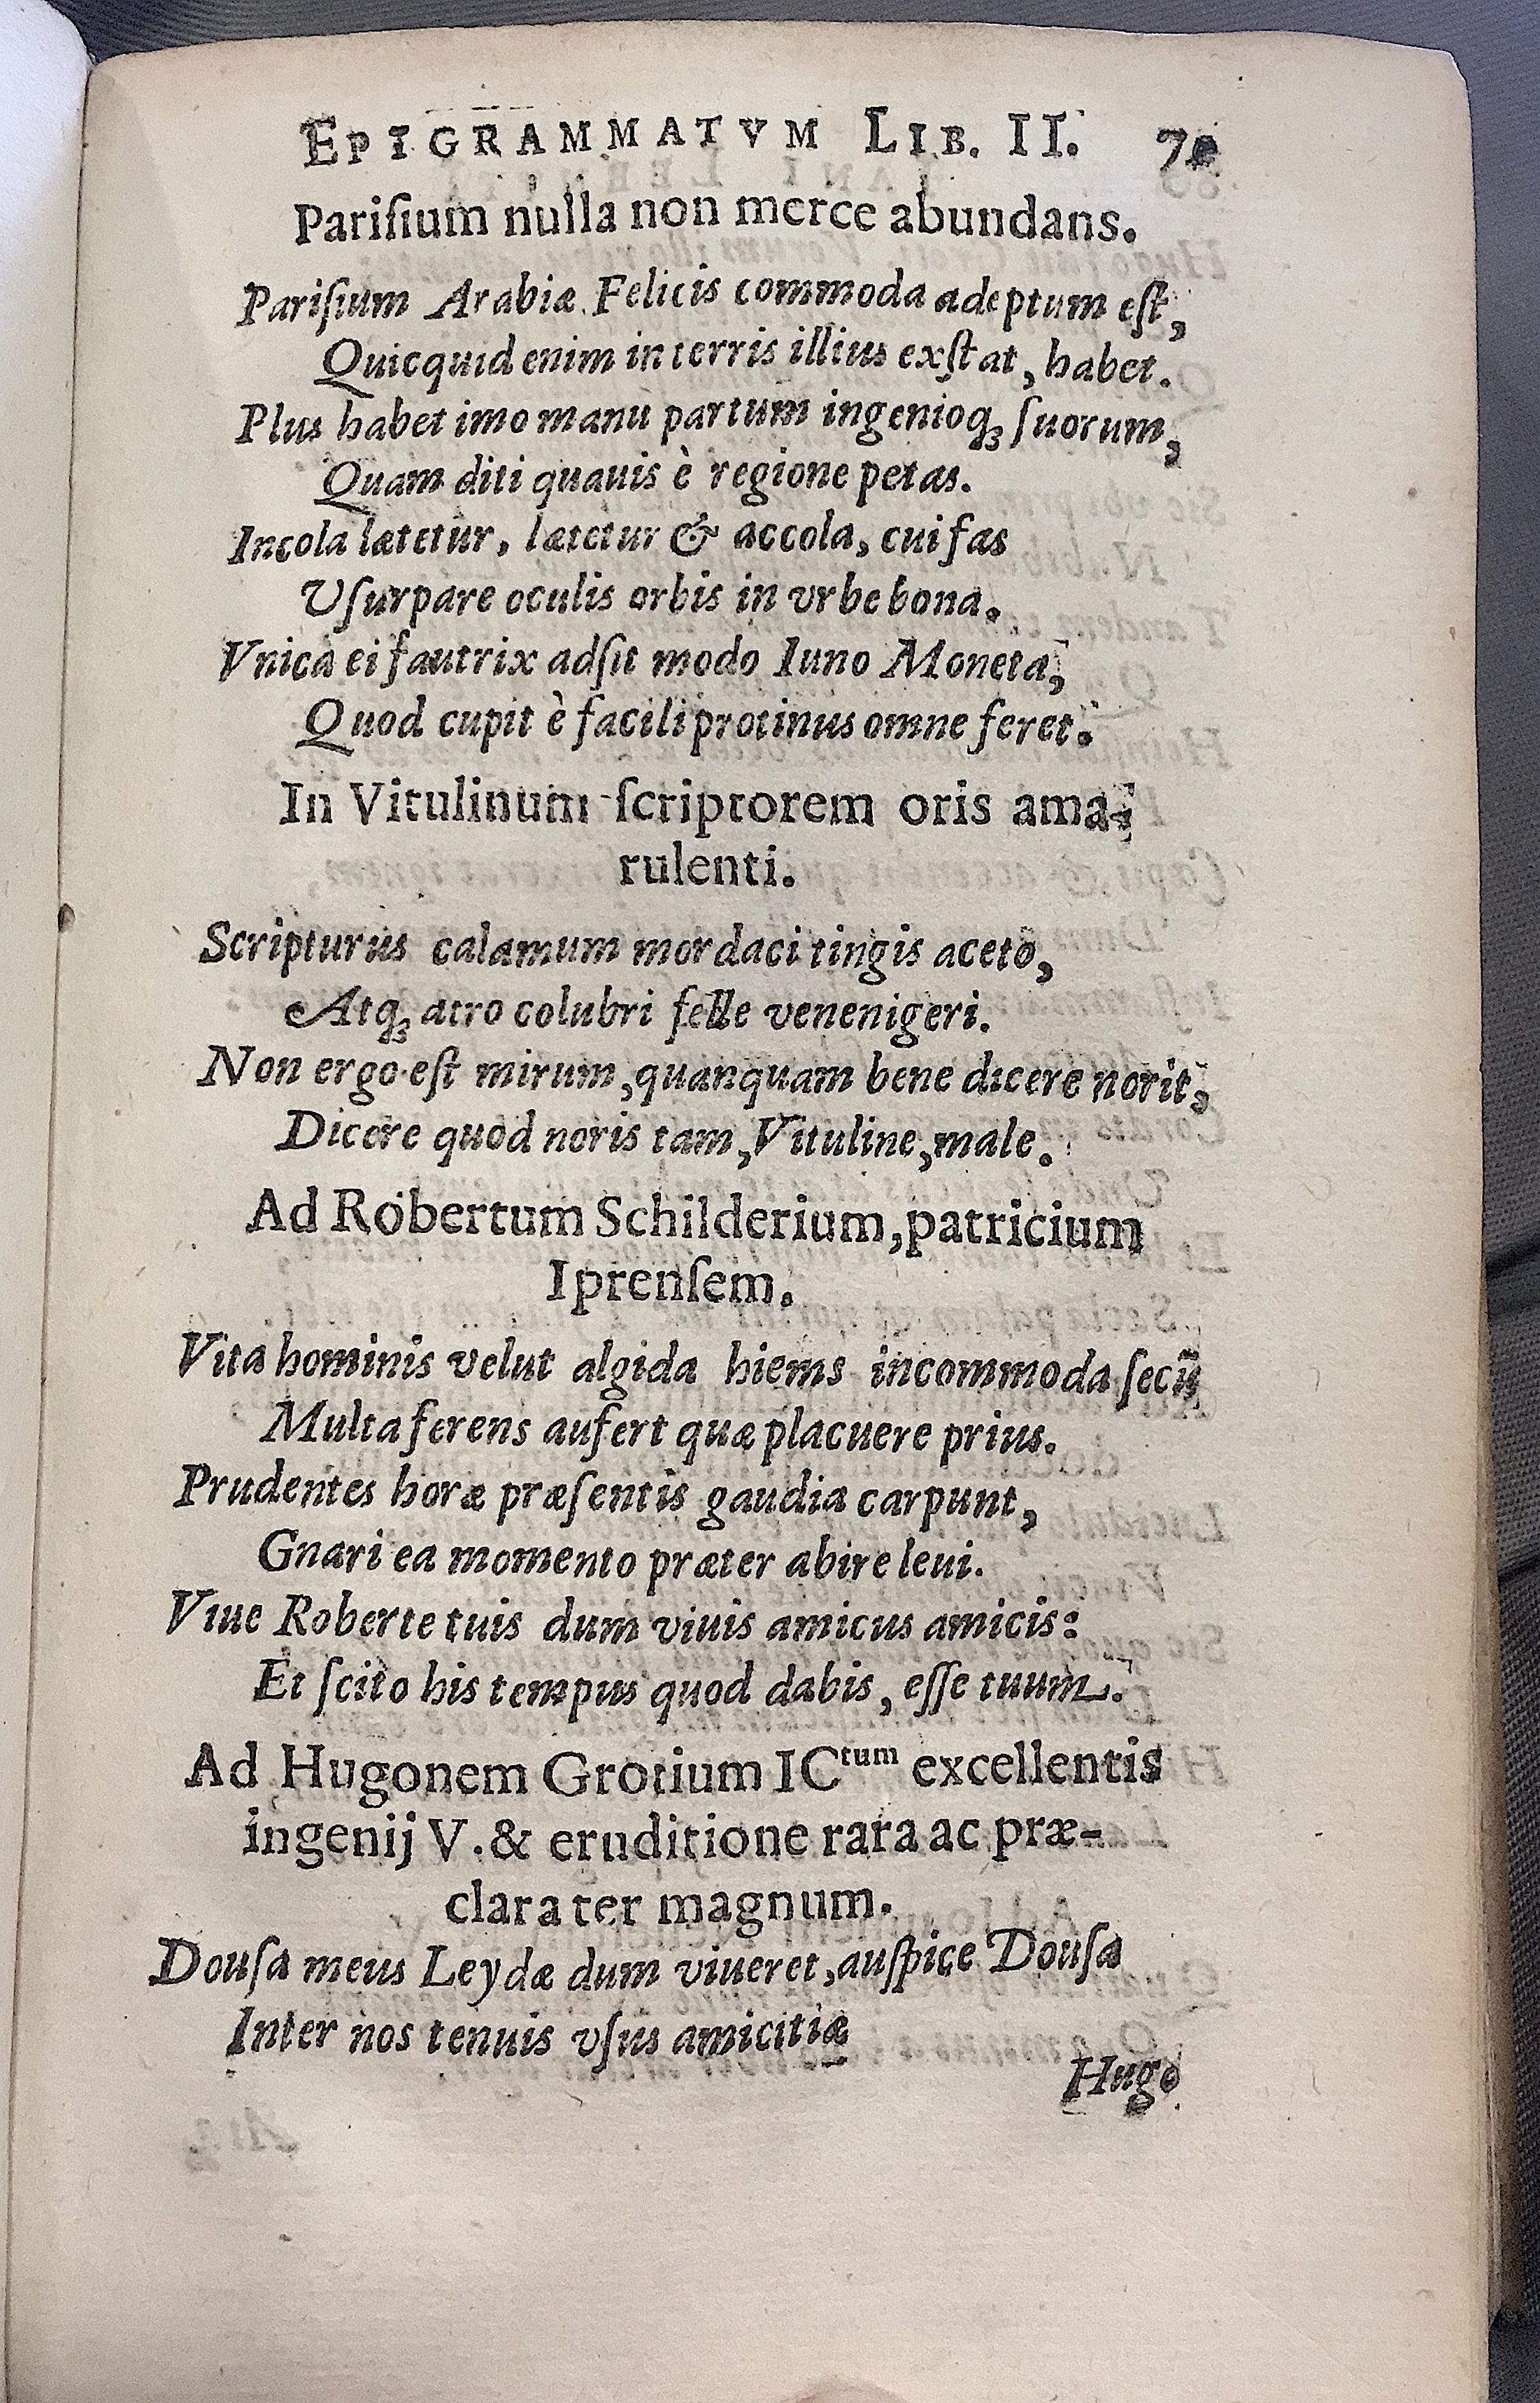 EPIGRAMMATVM LIB. II. 70
Pariſium nulla non merce abundans.
Pariſium Arabiæ Felicis commoda adeptum eſt,
Quicquid enim in terris illius exſtat, habet.
Plus habet imo manu partum ingenioqꝫ ſuorum,
Quam diti quauis è regione petas.
Incola lætetur, lætetur & accola, cui fas
Uſurpare oculis orbis in vrbe bona.
Vnica ei fautrix adſit modo Iuno Moneta,
Quod cupit è facili protinus omne feret.
In Vitulinum ſcriptorem oris ama-
rulenti.
Scripturus calamum mordaci tingis aceto,
Atqꝫ atro colubri felle venenigeri.
Non ergo eſt mirum, quanquam bene dicere norit,
Dicere quod noris tam, Vituline, male.
Ad Robertum Schilderium, patricium
Iprenſem.
Vita hominis velut algida hiems incommoda ſecū
Multa ferens aufert quæ placuere prius.
Prudentes horæ præſentis gaudia carpunt,
Gnari ea momento præter abire leui.
Viue Roberte tuis dum viuis amicus amicis:
Et ſcito his tempus quod dabis, eſſe tuum.
Ad Hugonem Grotium ICtum excellentis
ingenij V. & eruditione rara ac præ-
clara ter magnum.
Douſa meus Leydæ dum viueret, auſpice Douſa
Inter nos tenuis vſus amicitiæ
Hugo